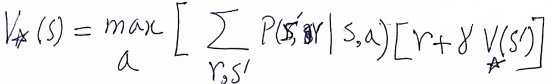 V_*(s) = max_a [ ∑_{r,s'} P(s',r | s,a) [r + γ V_*(s')] ]